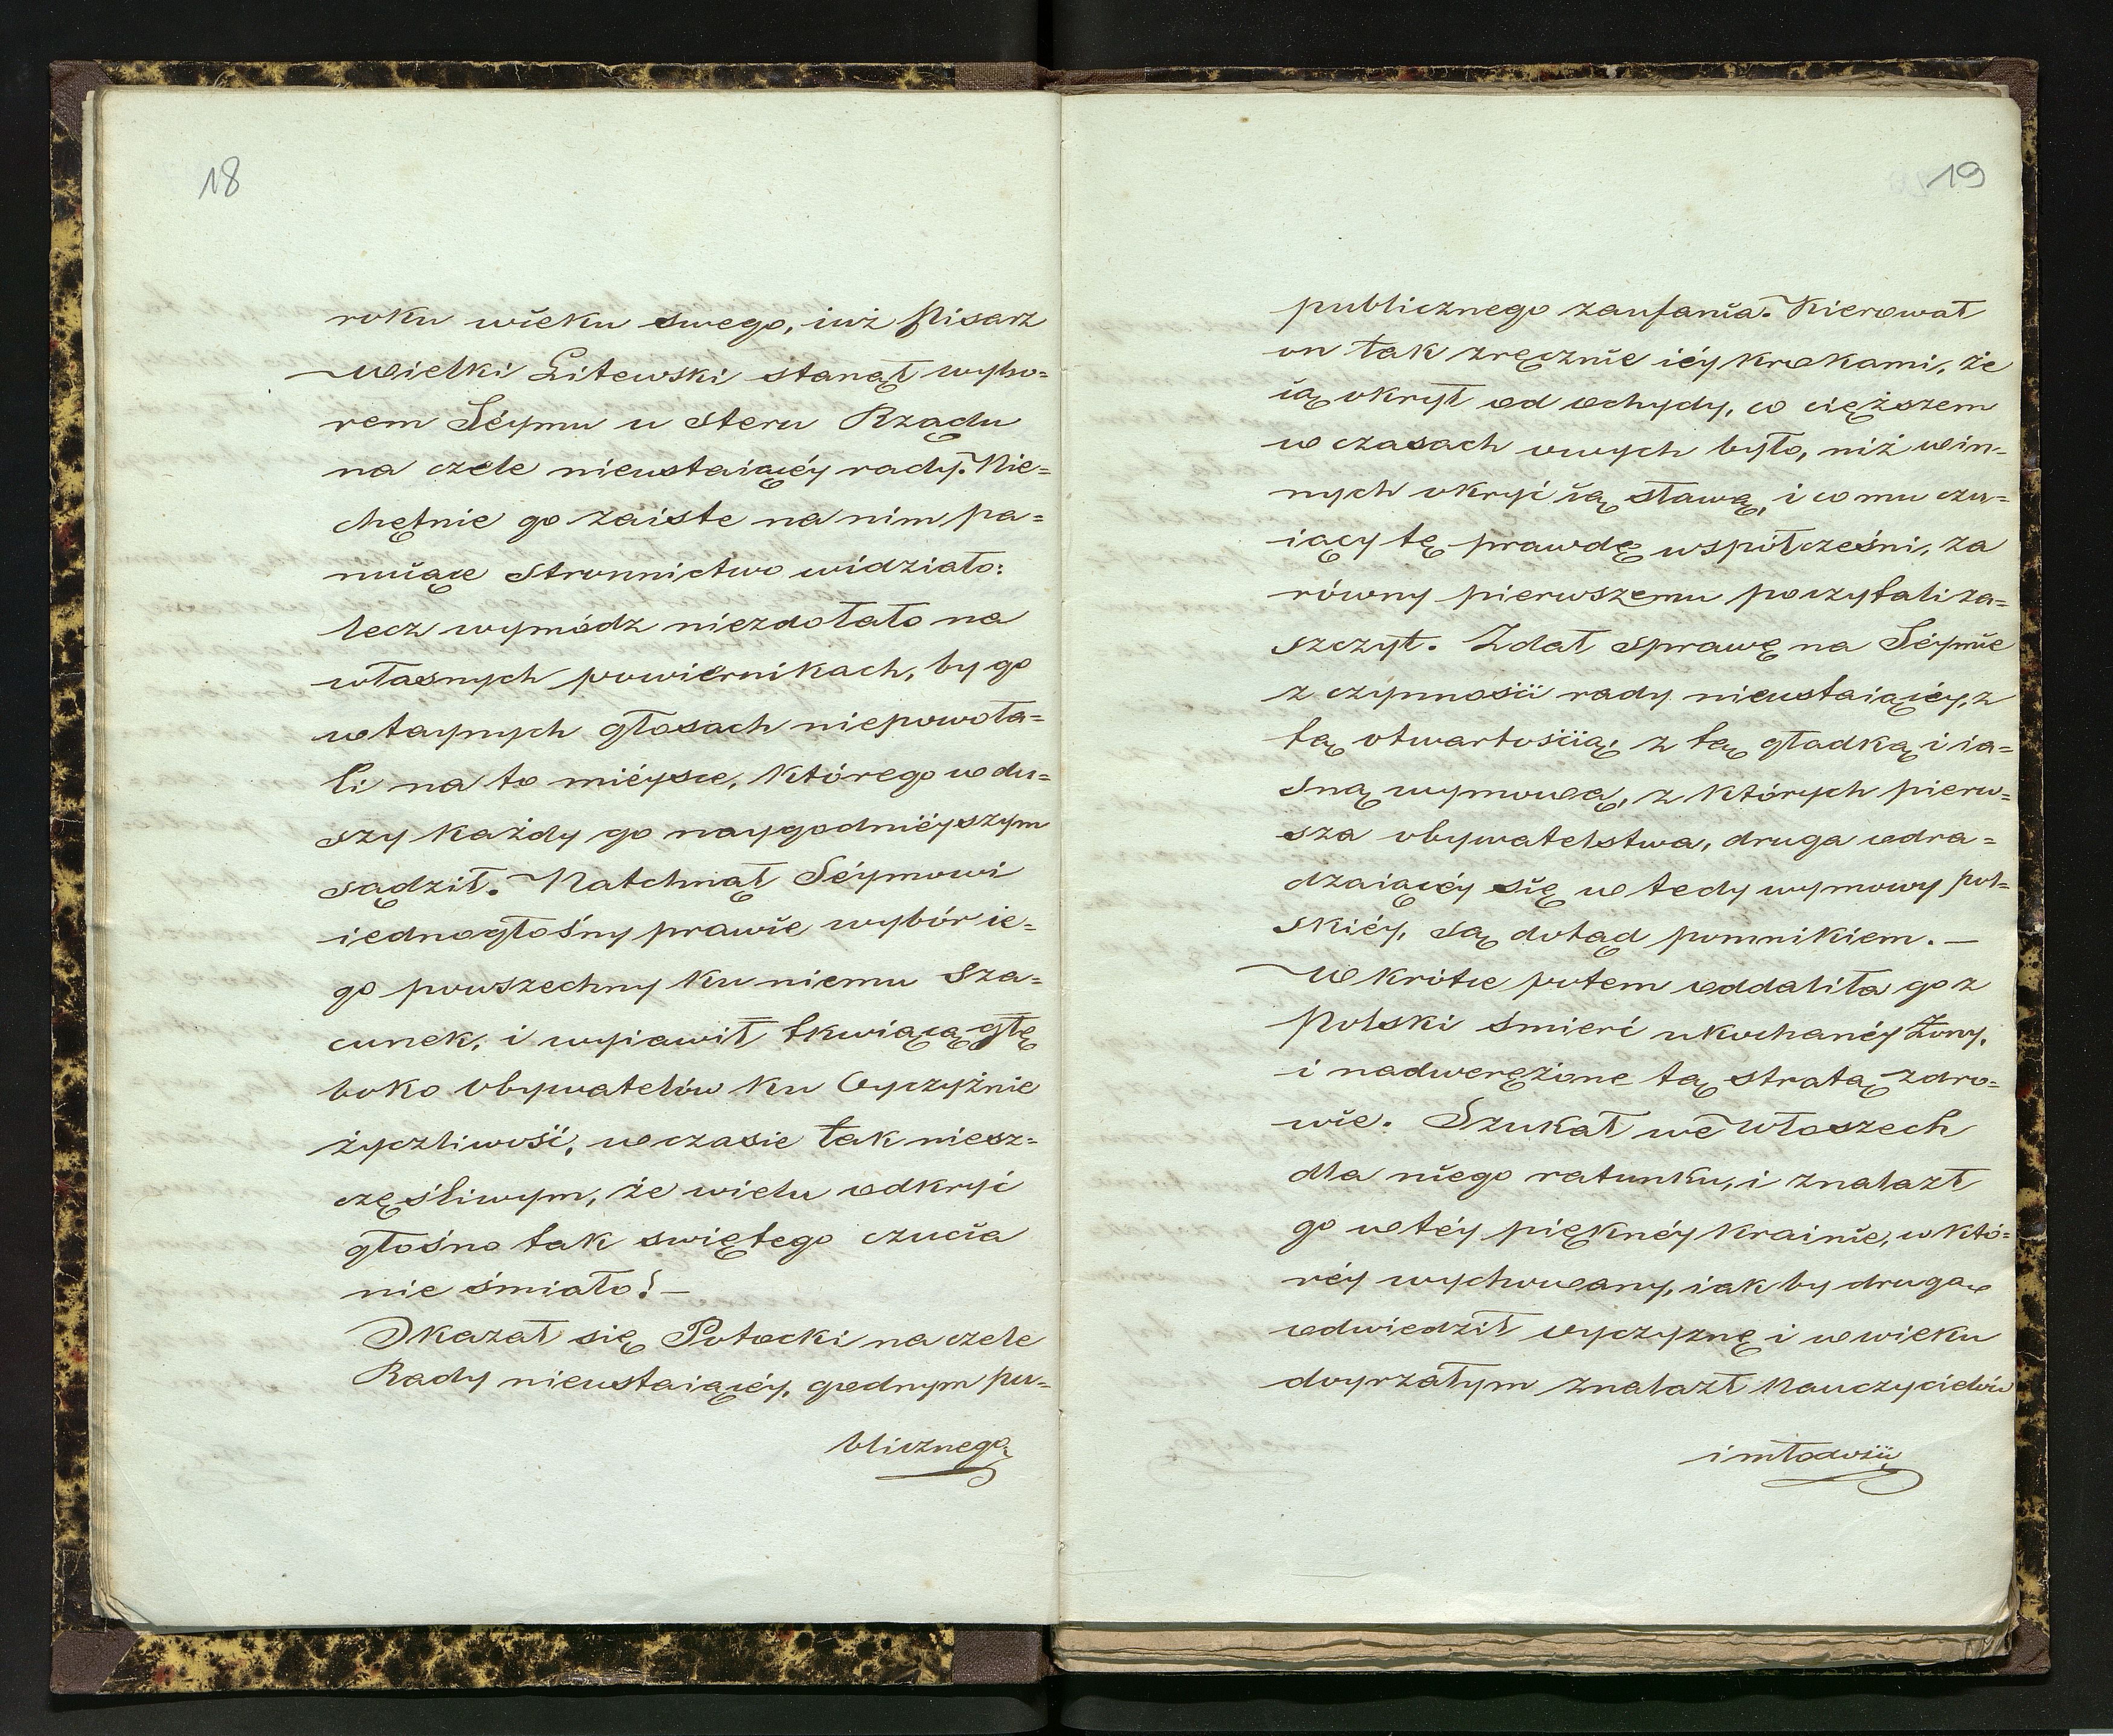 18
roku wieku swego, iuż Pisarz
Wielki Litewski stanął wybo=
rem Séymu u steru Rządu
na czele nieustaiącéy rady. Nie=
chętnie go zaiste na nim pa=
nuiące stronnictwo widziało:
lecz wymódz niezdołało na
własnych powiernikach, by go
w taynych głosach niepowoła=
li na to miéysce, którego w du=
szy każdy go naygodniéyszym
sądził. Natchnął Séymowi
iednogłośny prawie wybór ie=
go powszechny ku niemu sza=
cunek, i wyiawił tkwiącą głę
boko Obywatelów ku Oyczyźnie
życzliwość, w czasie tak niesz=
częśliwym, że wielu odkryć
głośno tak swiętego czucia
nie śmiało! —
Okazał się Potocki na czele
Rady nieustaiącéy, godnym pu=
blicznego
19
publicznego zaufania. Kierował
on tak zręcznie iéy krokami, że
ią okrył od ochydy, co cięższem
w czasach owych było, niż w in=
nych okryć ią sławą, i co mu czu=
iący tę prawdę współcześni, za
równy pierwszemu poczytali za=
szczyt. Zdał sprawę na Séymie
z czynności rady nieustaiącéy, z
tą otwartością, z tą gładką i ia=
sną wymową, z których pierw=
sza obywatelstwa, druga odra=
dzaiącéy się w tedy wymowy pol=
skiéy, są dotąd pomnikiem. —
W krótce potem oddaliła go z
Polski śmierć ukochanéy Żony,
i nadwerężone tą stratą zdro=
wie. Szukał we Włoszech
dla niego ratunku, i znalazł
go w téy pięknéy krainie, w któ=
réy wychowany, iak by drugą
odwiedził oyczyznę i w wieku
doyrzałym znalazł Nauczycielów
i młodości